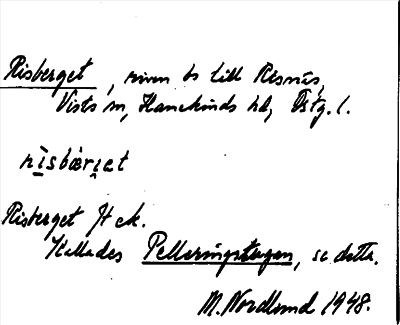 Risberget, riven ts till Risnäs,
Vists sn, Hanekinds hd, Östg. l.
rìsbærjet
Risberget Jfr ek.
Kallades Pelleringstugan, se detta.
M. Nordlund 1948.